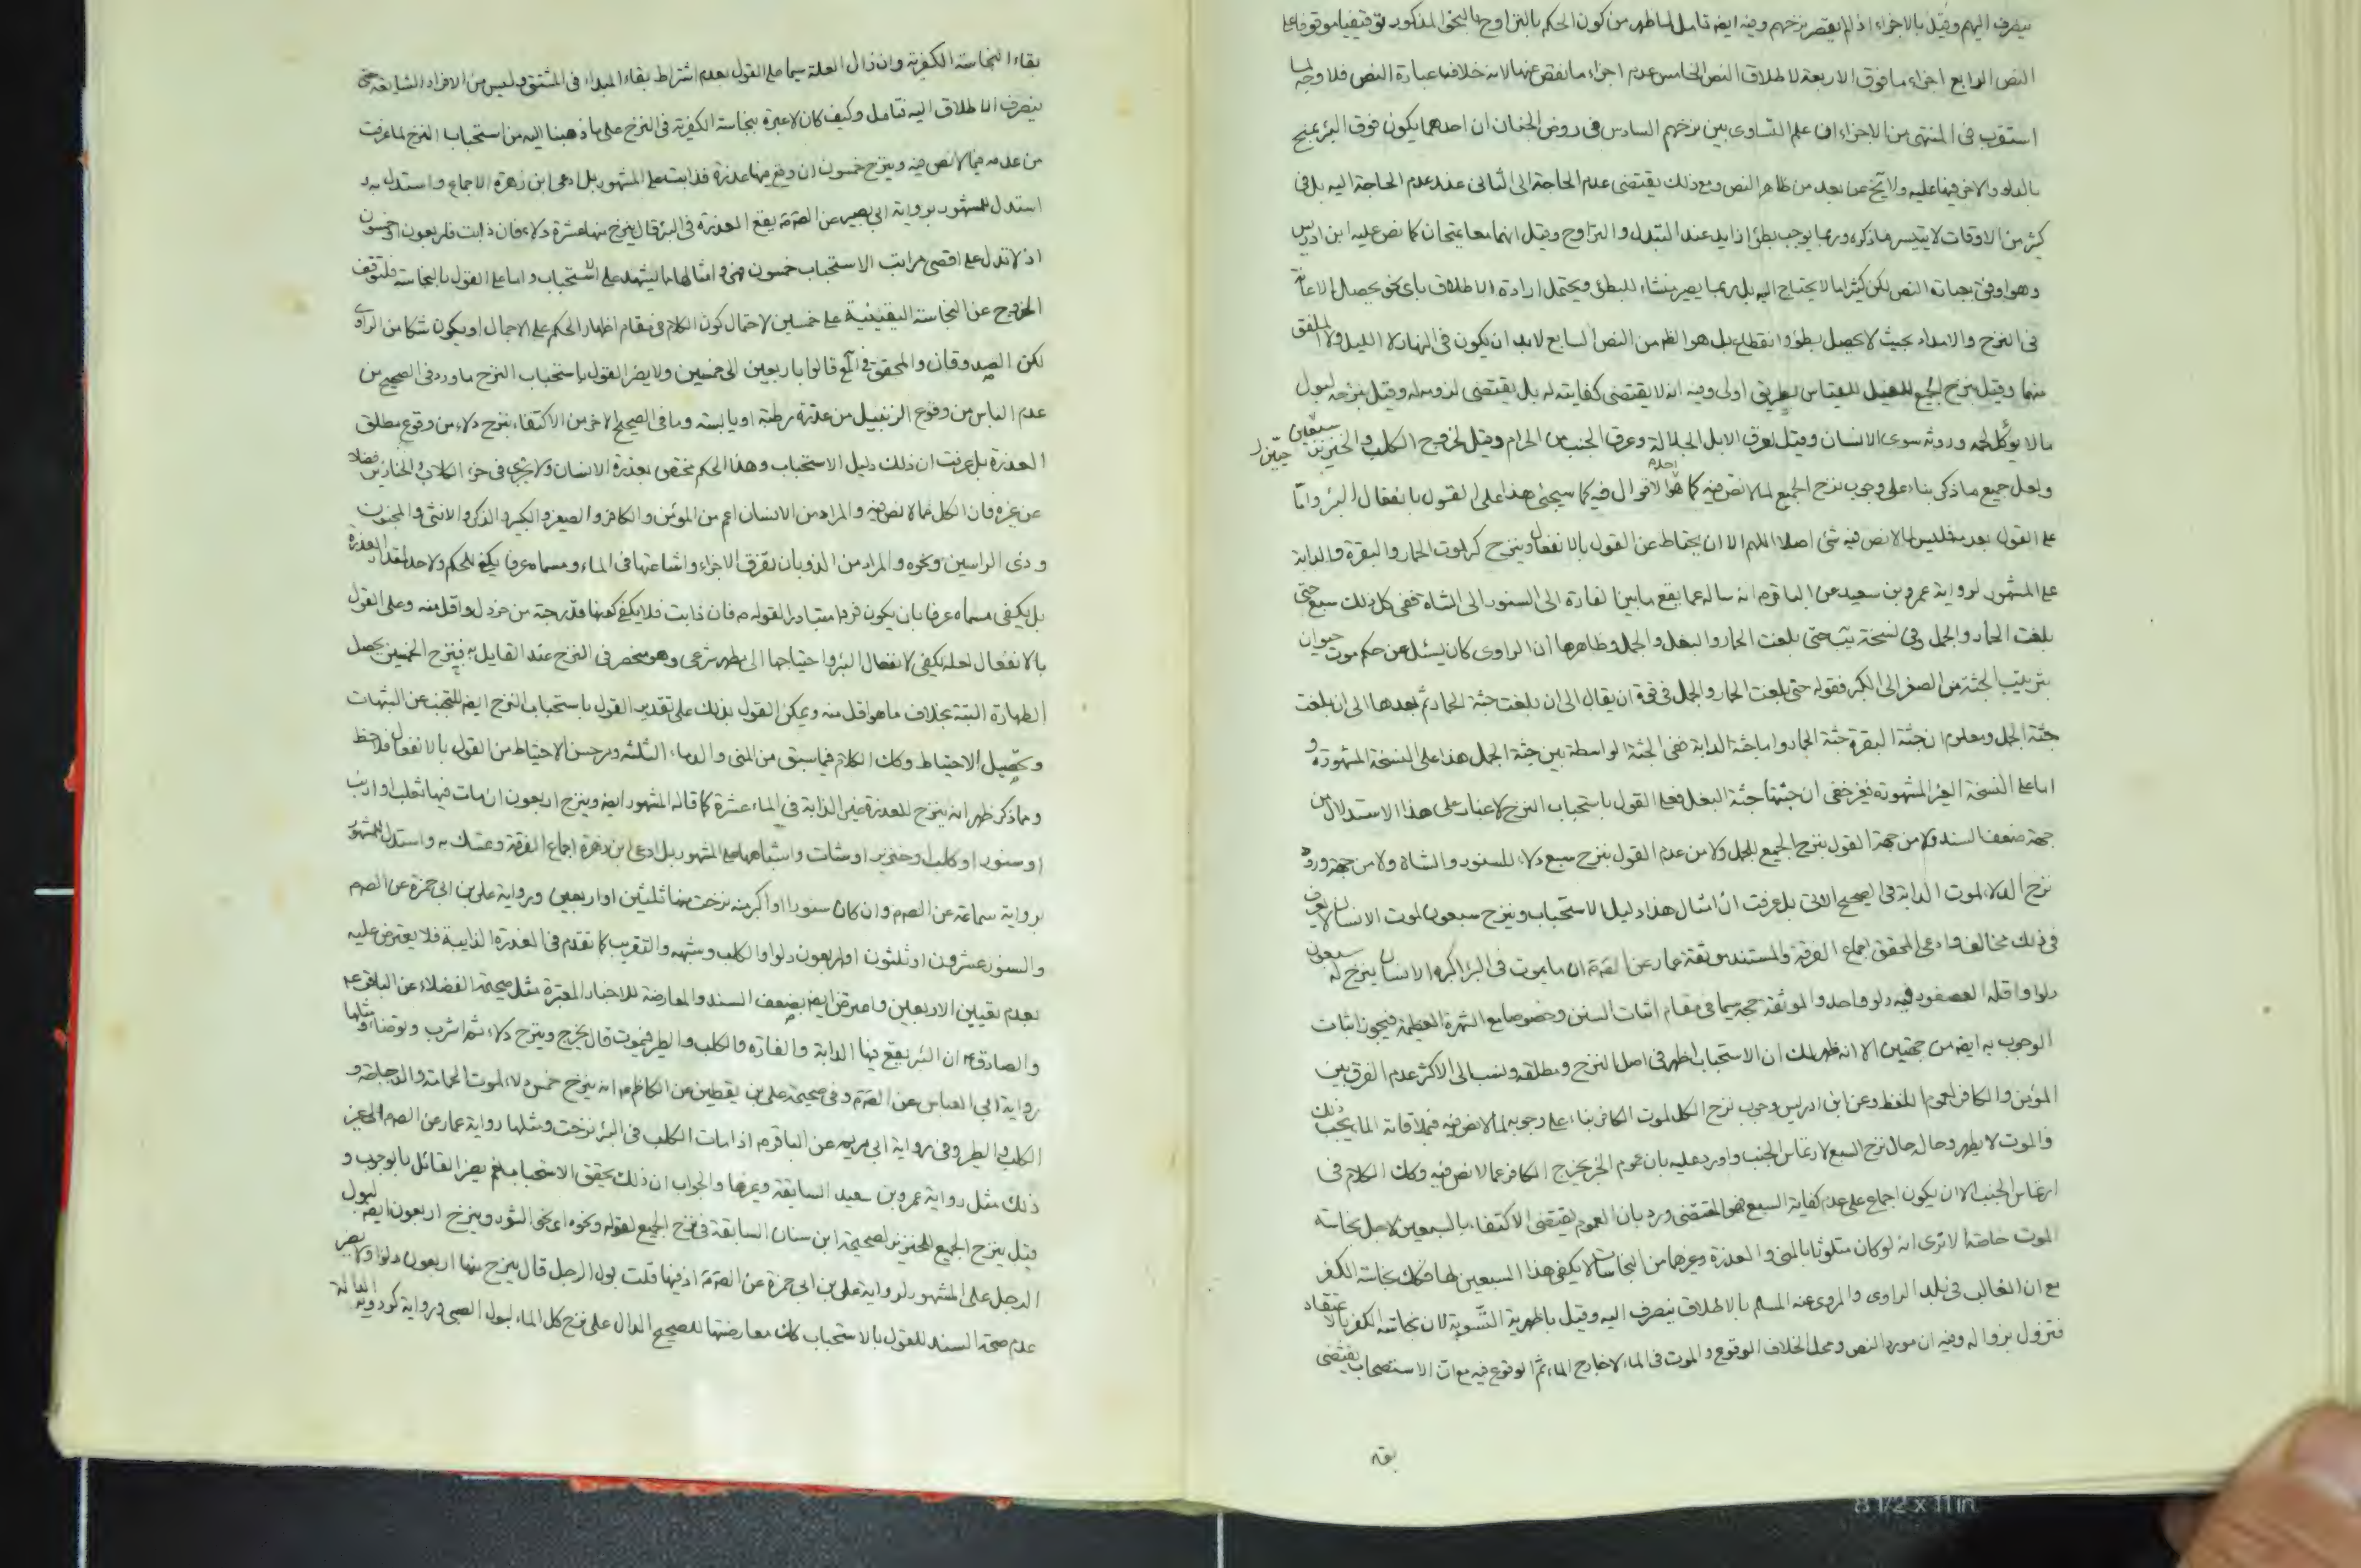 ينصرف اليهم وقيل بالاجزاء اذ لم يقصر نزحهم وفيه ايضا تامل لما ظهر من كون الحكم بالتراوح بالنحو المذكور توقيفيا موقوفا على
النص الرابع اجزاء ما فوق الاربعة لاطلاق النص الخامس عدم اجزاء ما نقص عنها لانه خلاف عبارة النص فلا وجه لما
استقرب في المنتهى من الاجزاء ان علم التساوى بين نزحهم السادس في روض الجنان ان احدهما يكون فوق البئر يمتح
بالدلو والاخر فيها عليه ولا يخ عن بعد من ظاهر النص ومع ذلك يقتضى عدم الحاجة الى الثانى عند عدم الحاجة اليه بل في
كثير من الاوقات لا يتيسر ما ذكره وربما يوجب بطؤا زايد عند التبدل والتراوح وقيل انهما معا يمتحان كما نص عليه ابن ادريس
وهو اوفق بعبارة النص لكن كثيرا ما لا يحتاج اليه بل ربما يصير منشاء للبطؤ ويحتمل ارادة الاطلاق باى نحو يحصل الاعانة
في النزح والامداد بحيث لا يحصل بطؤ وانقطاع بل هو الظ من النص السابع لابد ان يكون في النهار لا الليل ولا الملفق
منهما وقيل بنزح الجميع للفيل للقياس بطريق اولى وفيه انه لا يقتضى كفايته له بل يقتضى لزومه له وقيل بنزحه لبول
مالا يؤكل لحمه وروثه سوى الانسان وقيل لعرق الابل الجلالة وعرق الجنب من الحرام وقيل لخروج الكلب والخنزير حيين
ولعل جميع ما ذكر بناء على وجوب نزح الجميع لما لا نص فيه كما هو احد الاقوال فيه كما سيجئ هذا على القول بانفعال البئر واما
على القول بعدمه فليس لما لا نص فيه شئ اصلا اللهم الا ان يحتاط عن القول بالانفعال وينزح كر لموت الحمار والبقرة والدابة
على المشهور لرواية عمرو بن سعيد عن الباقر م انه ساله عما يقع ما بين الفارة الى السنور الى الشاة ففى كل ذلك سبع حتى
بلغت الحمار والجمل وفي نسخة يب حتى بلغت الحمار والبغل والجمل وظاهرها ان الراوى كان يسئل عن حكم موت حيوان
بترتيب الجثة من الصغر الى الكبر فقوله حتى بلغت الحمار والجمل في قوة ان يقال الى ان بلغت جثة الحمار ثم بعدها الى ان بلغت
جثة الجمل ومعلوم ان جثة البقرة جثة الحمار واما جثة الدابة ففى الجثة الواسطة بين جثة الجمل هذا على النسخة المشهورة و
اما على النسخة الغير المشهورة فغير خفى ان جثتها جثة البغل فعلى القول باستحباب النزح لا غبار على هذا الاستدلال من
جهة ضعف السند ولا من جهة القول بنزح الجميع للجمل ولا من عدم القول بنزح سبع دلاء للسنور والشاة ولا من جهة ورود
نزح الدلاء لموت الدابة في الصحيح الاتى بل عرفت ان امثال هذا دليل الاستحباب وينزح سبعون لموت الانسان لا يعرف
في ذلك مخالف وادعى المحقق اجماع الفرقة والمستند موثقة عمار عن الصم ان ما يموت في البئر اكبره الانسان ينزح له سبعون
دلوا واقله العصفور فيه دلو واحد والموثقة حجة سيما في مقام اثبات السنن وخصوصا مع الشهرة العظيمة فيجوز اثبات
الوجوب به ايضا من جهتين الا انه ظهر لك ان الاستحباب اظهر في اصل النزح ومطلقه ونسب الى الاكثر عدم الفرق بين
المؤمن والكافر لعموم اللفظ وعن ابن ادريس وجوب نزح الكل لموت الكافر بناء على وجوبه لما لا نص فيه فبملاقاته الماء يجب ذلك
والموت لا يطهر وحاله حال نزح السبع لارتماس الجنب واورد عليه بان عموم الخبر يخرج الكافر عما لا نص فيه وكك الكلام في
ارتماس الجنب الا ان يكون اجماع على عدم كفاية السبع فهو المقتضى ورد بان العموم يقتضى الاكتفاء بالسبعين لاجل نجاسة
الموت خاصة الا ترى انه لو كان متلوثا بالمنى والعذرة وغيرهما من النجاسات لا يكفى هذا السبعين لها فكك نجاسة الكفر
مع ان الغالب في بلد الراوى والمروى عنه المسلم بالاطلاق ينصرف اليه وقيل باظهرية التسوية لان نجاسة الكفر بالاعتقاد
فتزول بزواله وفيه ان مورد النص ومحل الخلاف الوقوع والموت في الماء لا خارج الماء ثم الوقوع فيه مع ان الاستصحاب يقتضى
بقاء
بقاء النجاسة الكفرية وان زال العلة سيما على القول بعدم اشتراط بقاء المبداء في المشتق وليس من الافراد الشايعة حتى
ينصرف الاطلاق اليه فتامل وكيف كان لا عبرة بنجاسة الكفرية في النزح على ما ذهبنا اليه من استحباب النزح لما عرفت
من عدمه فيما لا نص فيه وينزح خمسون ان وقع فيها عذرة فذابت على المشهور بل ادعى ابن زهرة الاجماع واستدل به و
استدل للمشهور برواية ابى بصير عن الصم يقع العذرة في البئر قال ينزح منها عشرة دلاء فان ذابت فاربعون او خمسون
اذ لا تدل على اقصى مراتب الاستحباب خمسون فهى وامثالها مما يشهد على الاستحباب واما على القول بالنجاسة فلتوقف
الخروج عن النجاسة اليقينية على خمسين لاحتمال كون الكلام في مقام اظهار الحكم على الاجمال او يكون شكا من الراوى
لكن الصدوقان والمحقق في المع قالوا باربعين الى خمسين ولا يضر القول باستحباب النزح ما ورد في الصحيح من
عدم الباس من وقوع الزنبيل من عذرة رطبة او يابسة وما في الصحيح الاخر من الاكتفاء بنزح دلاء من وقوع مطلق
العذرة بل عرفت ان ذلك دليل الاستحباب وهذا الحكم مختص بعذرة الانسان ولا يجرى في خرء الكلاب والخنازير فضلا
عن غيره فان الكل مما لا نص فيه والمراد من الانسان اعم من المؤمن والكافر والصغير والكبير والذكر والانثى والمجنون
وذى الراسين ونحوه والمراد من الذوبان تفرق الاجزاء واشاعتها في الماء ومسماه عرفا يكفى للحكم ولا حد لمقدار العذرة
بل يكفى مسماه عرفا بان يكون فردا متبادرا لقوله م فان ذابت فلا يكفى كونها قدر حبة من خردل واقل منه وعلى القول
بالانفعال لعله يكفى لانفعال البئر واحتياجها الى مطهر شرعى وهو منحصر في النزح عند القايل به فبنزح الخمسين يحصل
الطهارة البتة بخلاف ما هو اقل منه ويمكن القول بذلك على تقدير القول باستحباب النزح ايضا للتجنب عن الشبهات
وتحصيل الاحتياط وكك الكلام فيما سبق من المنى والدماء الثلثة ومر حسن الاحتياط من القول بالانفعال فلاحظ
ومما ذكر ظهر انه ينزح للعذرة غير الذابة في الماء عشرة كما قاله المشهور ايضا وينزح اربعون ان مات فيها ثعلب او ارنب
او سنور او كلب او خنزير او شات واشباهها على المشهور بل ادعى ابن زهرة اجماع الفرقة وتمسك به واستدل للمشهور
برواية سماعة عن الصم وان كان سنورا او اكبر منه نزحت منها ثلثين او اربعين وبرواية على بن ابى حمزة عن الصم
والسنور عشرون او ثلثون او اربعون دلوا والكلب وشبهه والتقريب كما تقدم في العذرة الذايبة فلا يعترض عليه
بعدم تعيين الاربعين واعترض ايضا بضعف السند والمعارضة للاخبار المعتبرة مثل صحيحة الفضلاء عن الباقر ع
والصادق ع ان البئر يقع فيها الدابة والفارة والكلب والطير فيموت قال يخرج وينزح دلاء ثم اشرب وتوضئا ومثلها
رواية ابى العباس عن الصم وفي صحيحة على بن يقطين عن الكاظم م انه ينزح خمس دلاء لموت الحمامة والدجاجة و
الكلب والطير وفي رواية ابى مريم عن الباقر م اذا مات الكلب في البئر نزحت ومثلها رواية عمار عن الصم الى غير
ذلك مثل رواية عمرو بن سعيد السابقة وغيرها والجواب ان ذلك يحقق الاستحباب نعم يضر القائل بالوجوب و
قيل ينزح الجميع للخنزير لصحيحة ابن سنان السابقة في نزح الجميع لقوله ونحوه اى نحو الثور وينزح اربعون ايضا لبول
الرجل على المشهور لرواية على بن ابى حمزة عن الصم اذ فيها قلت بول الرجل قال ينزح منها اربعون دلوا ولا يضر
عدم صحة السند للقول بالاستحباب كك معارضتها للصحيح الدال على نزح كل الماء لبول الصبى ورواية كردويه الدالة
8 1/2 x 11 in